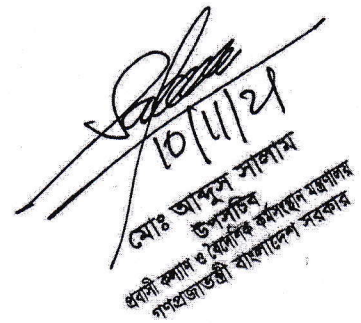 Salam
10/11/21
মোঃ আব্দুস সালাম
উপসচিব
প্রবাসী কল্যাণ ও বৈদেশিক কর্মসংস্থান মন্ত্রণালয়
গণপ্রজাতন্ত্রী বাংলাদেশ সরকার